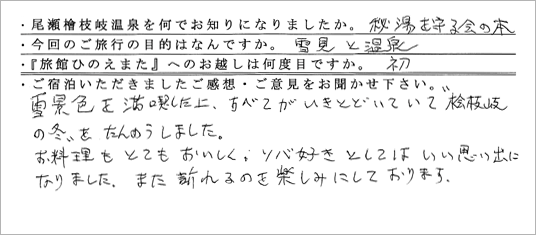 ・尾瀬檜枝岐温泉を何でお知りになりましたか。 秘湯を守る会の本
・今回のご旅行の目的はなんですか。 雪見と温泉
・『旅館ひのえまた』へのお越しは何度目ですか。 初
・ご宿泊いただきましたご感想・ご意見をお聞かせ下さい。
雪景色を満喫した上、すべてがいきとどいていて〝桧枝岐
の冬〟をたんのうしました。
お料理もとてもおいしく、ソバ好きとしてはいい思い出に
なりました。また訪れるのを楽しみにしております。